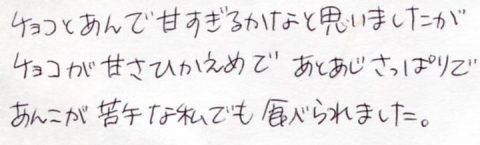 チョコとあんで甘すぎるかなと思いましたが
チョコが甘さひかえめで あとあじさっぱりで
あんこが苦手な私でも食べられました。